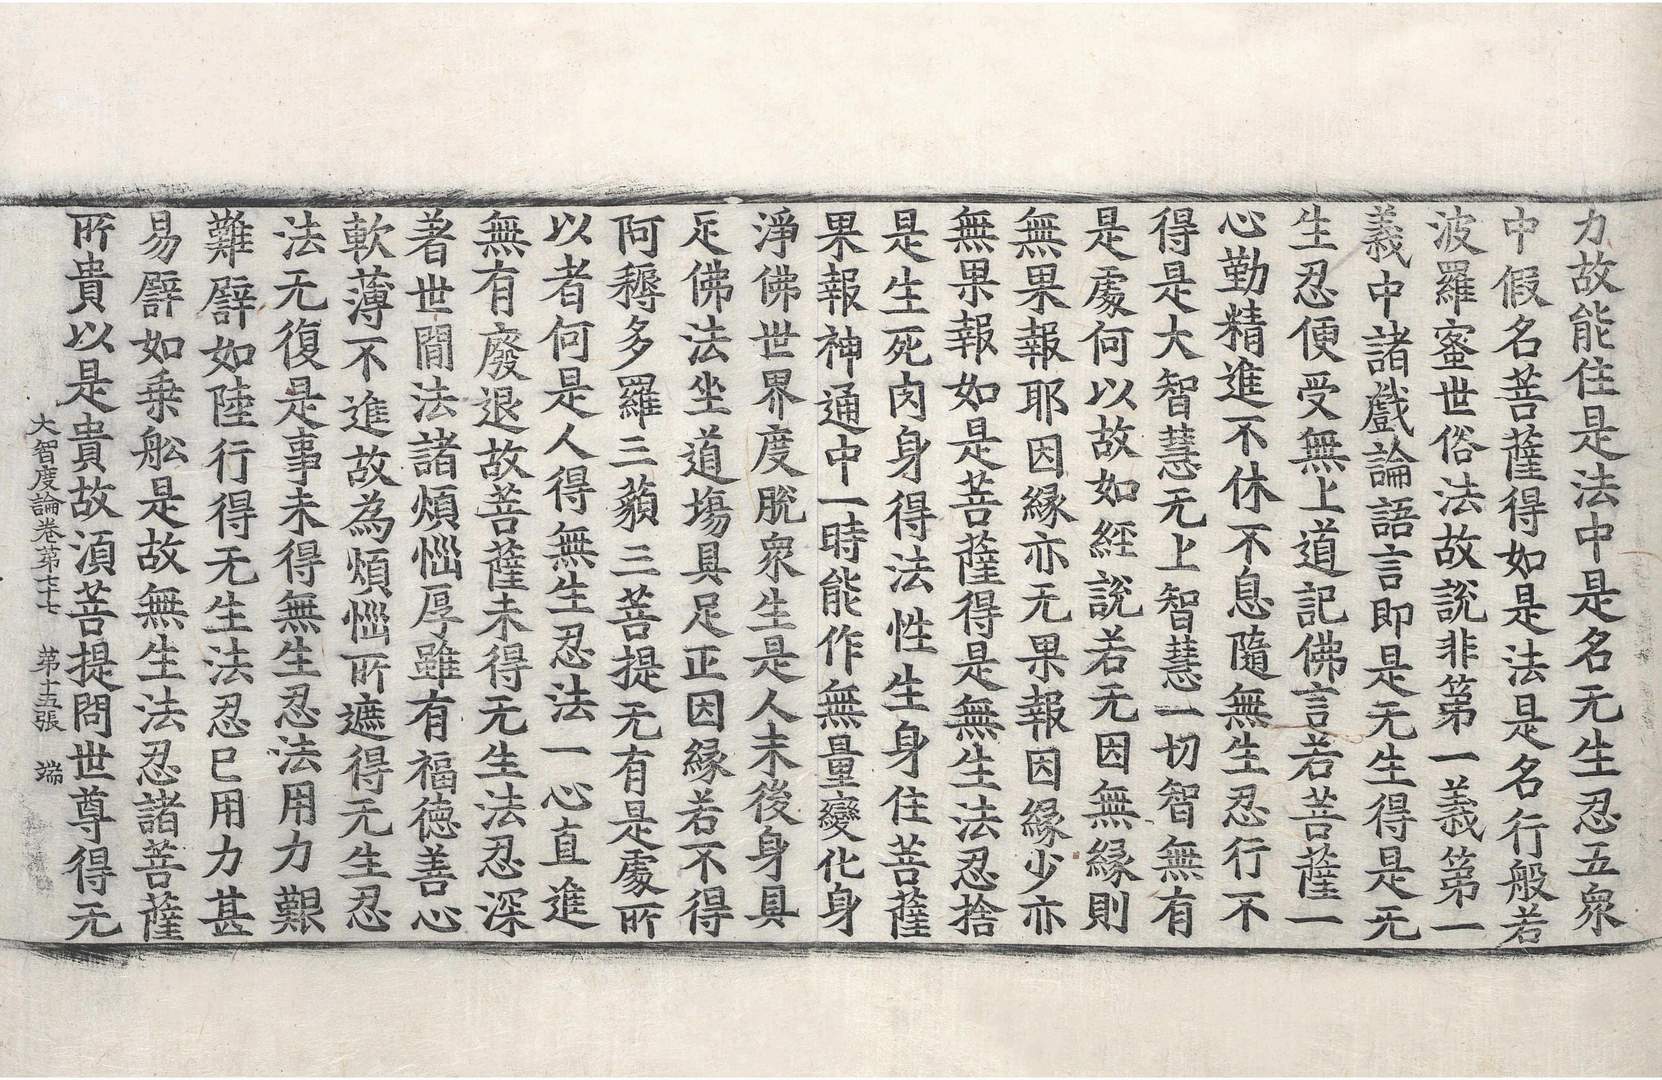 力故能住是法中是名无生忍五衆
中假名菩薩得如是法是名行般若
波羅蜜世俗法故說非第一義第一
義中諸戲論語言即是无生得是无
生忍便受無上道記佛言若菩薩一
心勤精進不休不息隨無生忍行不
得是大智慧无上智慧一切智無有
是處何以故如經說若无因無緣則
無果報耶因緣亦无果報因緣少亦
無果報如是菩薩得是無生法忍捨
是生死肉身得法性生身住菩薩
果報神通中一時能作無量變化身
淨佛世界度脫衆生是人末後身具
足佛法坐道場具足正因緣若不得
阿耨多羅三藐三菩提无有是處所
以者何是人得無生忍法一心直進
無有廢退故菩薩未得无生法忍深
著世間法諸煩惱厚雖有福德善心
軟薄不進故為煩惱所遮得无生忍
法无復是事未得無生忍法用力艱
難譬如陸行得无生法忍已用力甚
易譬如乗舩是故無生法忍諸菩薩
所貴以是貴故須菩提問世尊得无
大智度論卷第七十七　第十五張　端